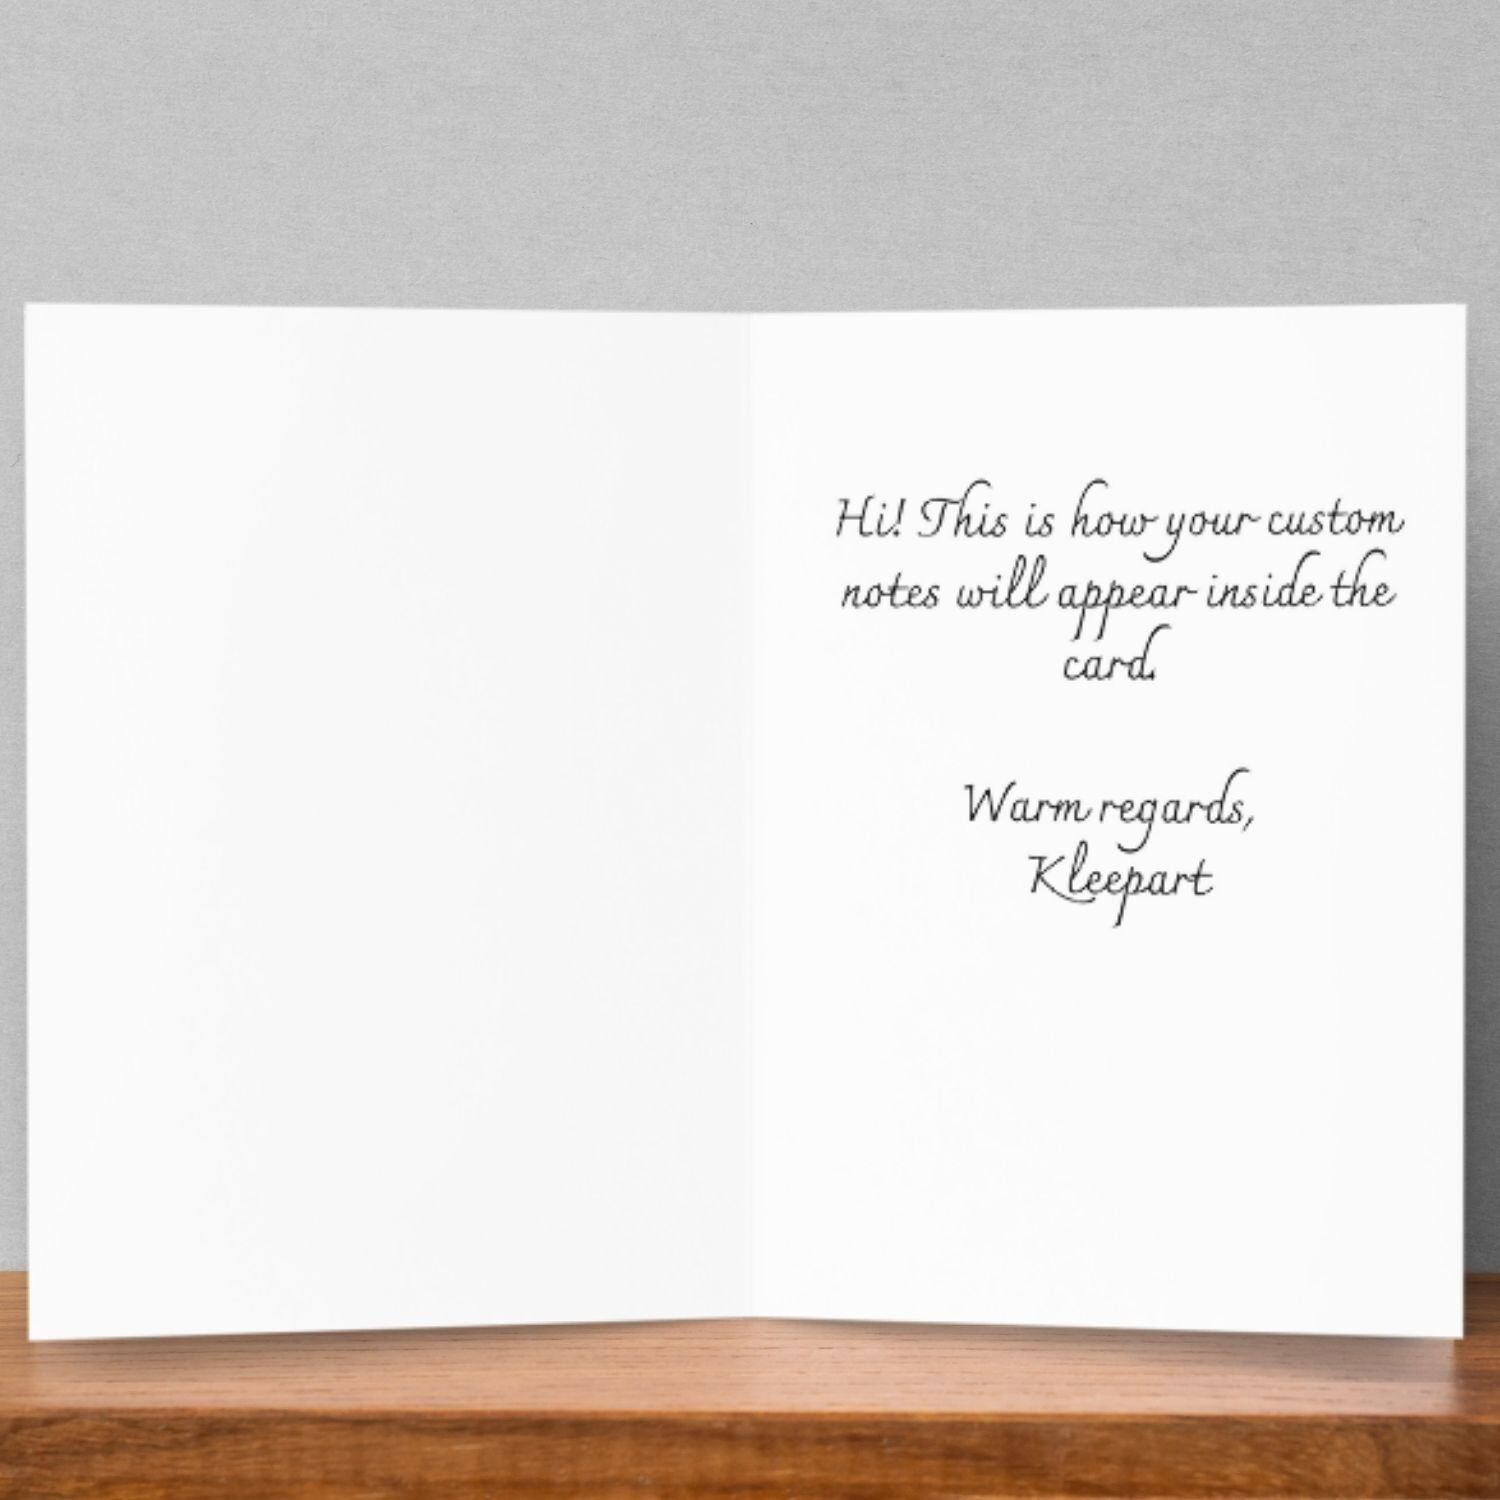 Hi! This is how your custom
notes will appear inside the
card.
Warm regards,
Kleepart